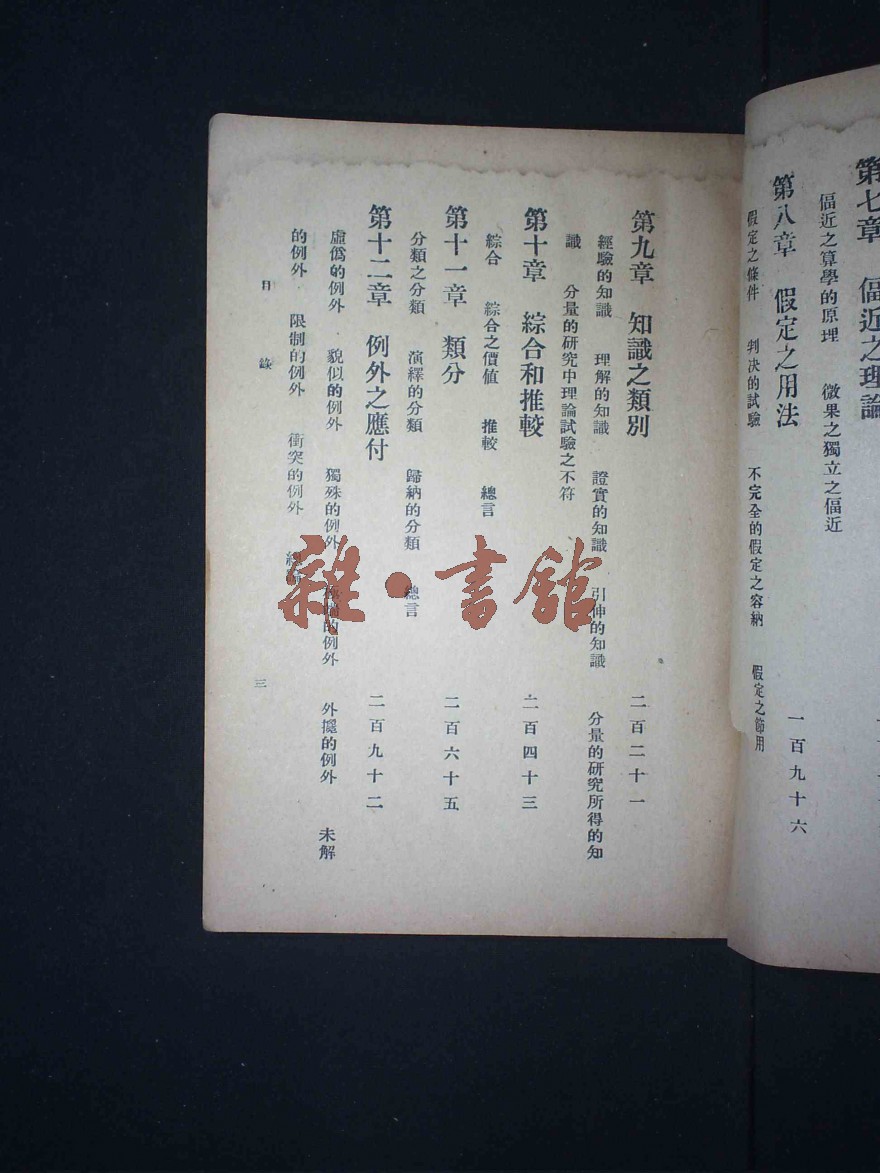 第七章　偪近之理論
偪近之算學的原理　微果之獨立之偪近
第八章　假定之用法　一百九十六
假定之條件　判决的試驗　不完全的假定之容納　假定之節用
第九章　知識之類別　二百二十一
經驗的知識　理解的知識　證實的知識　引伸的知識　分量的研究所得的知
識　分量的研究中理論試驗之不符
第十章　綜合和推較　二百四十三
綜合　綜合之價值　推較　總言
第十一章　類分　二百六十五
分類之分類　演繹的分類　歸納的分類　總言
第十二章　例外之應付　二百九十二
虛僞的例外　貌似的例外　獨殊的例外　的例外　外擺的例外　未解
的例外　限制的例外　衝突的例外
目錄　三
雜·書館